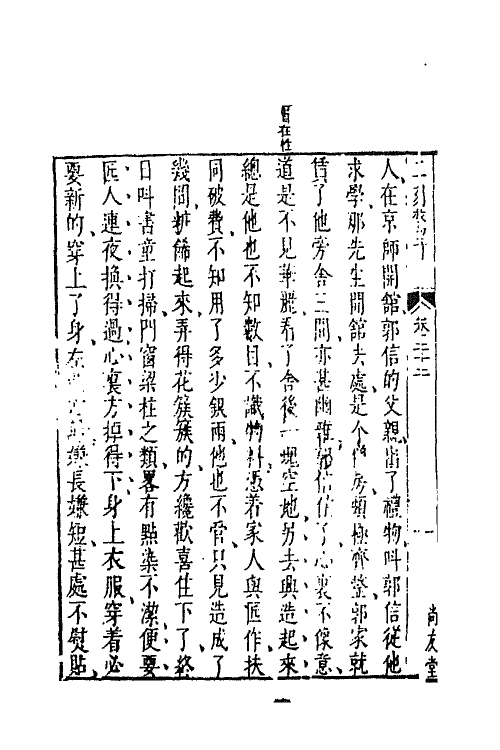 二刻驚奇 卷二十二 一 尚友堂
人在京師開館郭信的父親出了禮物叫郭信從他
求學那先生開館去處是个房頗極齊整郭家就
賃了他旁舍三間亦甚幽雅郭信住了心裏不像意
道是不見華麗看了舍後一塊空地另去興造起來
總是他也不知數目不識物料憑着家人與匠作扶
同破費不知用了多少銀兩他也不管只見造成了
幾間粧飾起來弄得花簇簇的方纔歡喜住下了終
日叫書童打掃門窗梁柱之類畧有點染不潔便要
匠人連夜換得過心裏方掉得下身上衣服穿着必
要新的穿上了身左嫌長嫌短甚處不熨貼